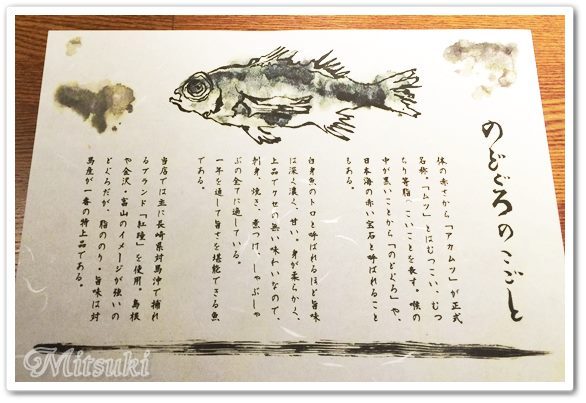 のどぐろのこごと
体の赤さから「アカムツ」が正式
名称。「ムツ」とはむつこい、むつ
ちり等脂っこいことを表す。喉の
中が黒いことから「のどぐろ」や、
日本海の赤い宝石と呼ばれること
もある。
白身魚のトロと呼ばれるほど旨味
は深く濃く、甘い。身が柔らかく、
上品でクセの無い味わいなので、
刺身、焼き、煮つけ、しゃぶしゃ
ぶの全てに適している。
一年を通して旨さを堪能できる魚
である。
当店では主に長崎県対馬沖で捕れ
るブランド「紅瞳」を使用。島根
や金沢、富山のイメージが強いの
どぐろだが、脂ののり・旨味は対
馬産が一番の特上品である。
Mitsuki